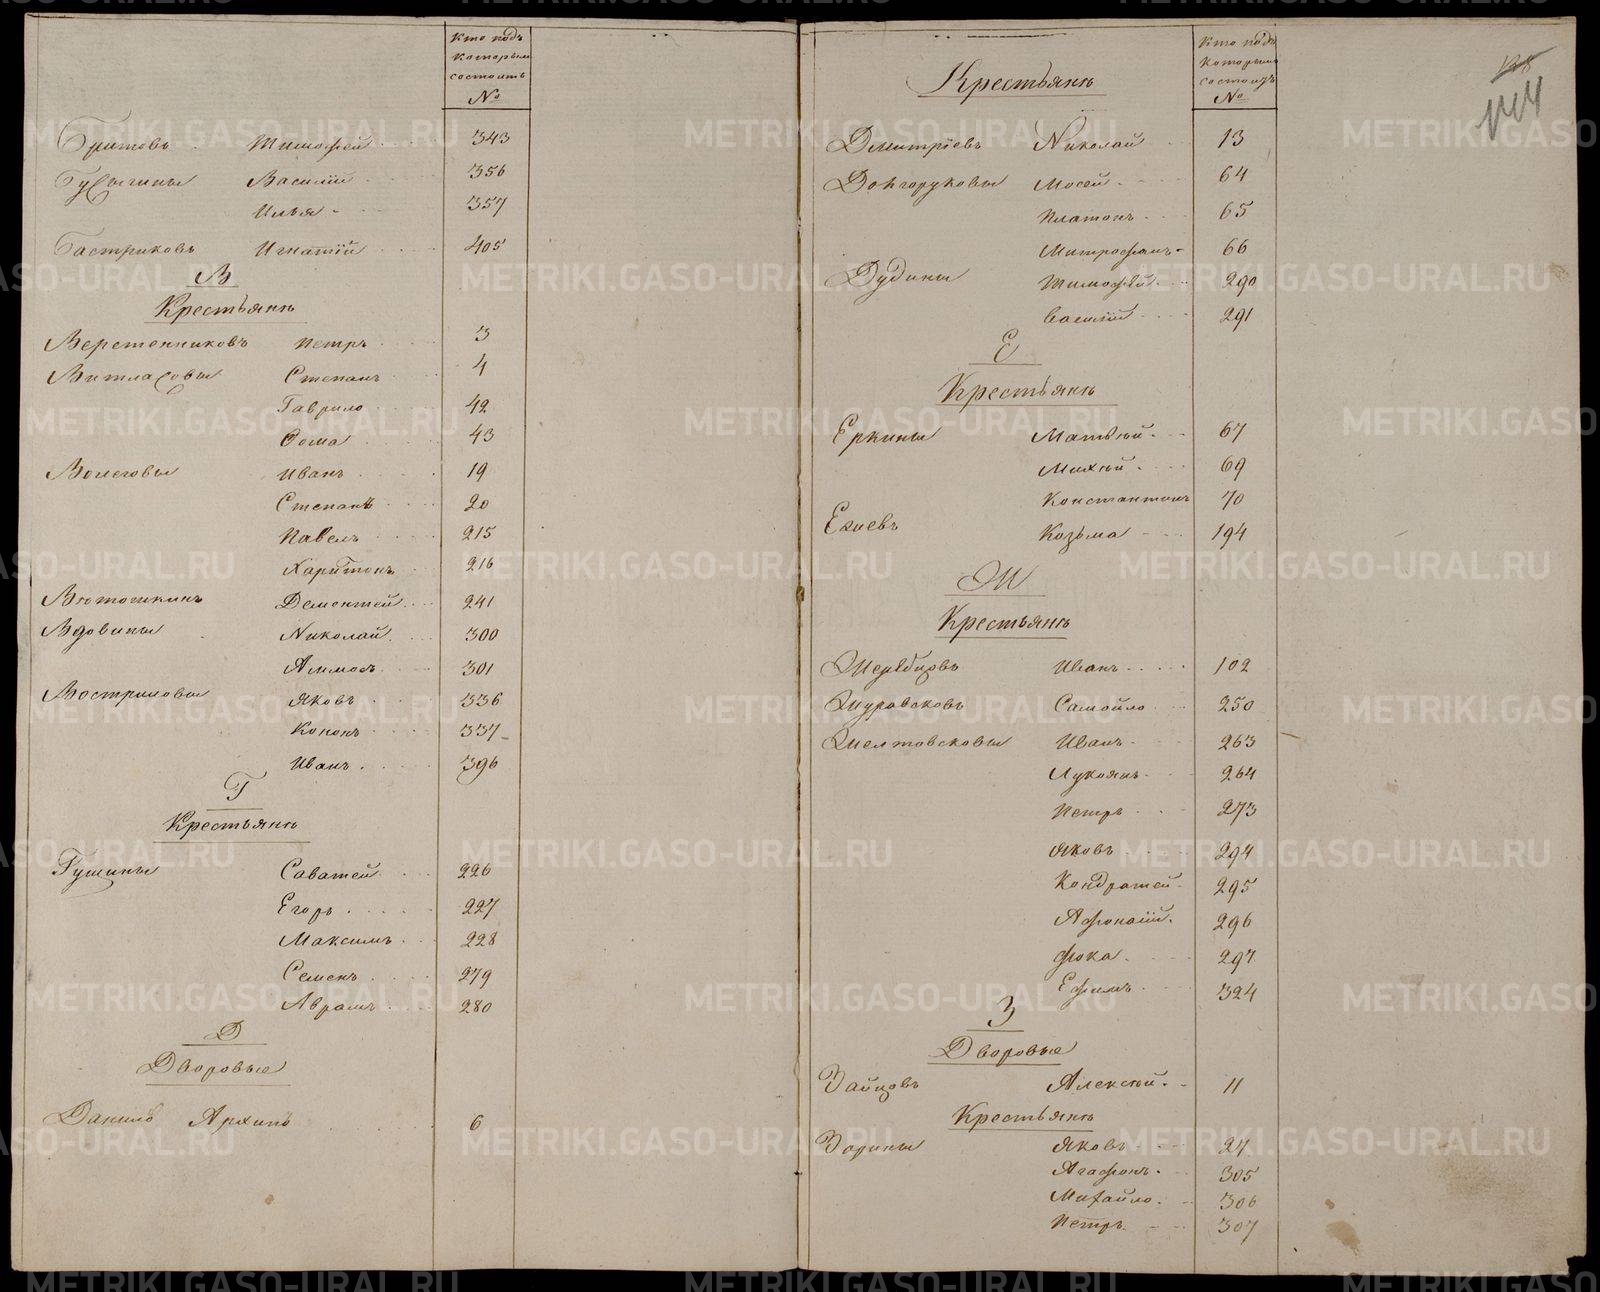 Кто подъ
которым
состоитъ
№
Бритовъ Тимофей 343
Бусыгины Василiй 356
Илья 357
Бастриковъ Игнатiй 405
В
Крестьянѣ
Верстенниковъ Петръ 3
Степанъ 4
Гаврило 42
Фома 43
Иванъ 19
Степанъ 20
Павелъ 215
Харитонъ 216
Дементей 241
Вдовины Николай 300
301
Яковъ 336
Кононъ 337
Иванъ 396
Г
Крестьянѣ
Гущины Саватей 226
Егоръ 227
Максимъ 228
Семенъ 279
Аврамъ 280
Д
Дворовые
Данило Архипъ 6
Кто подъ
которымъ
состоитъ
№
144
Крестьянѣ
Дмитрiевъ Николай 13
Долгоруковы Мосей 64
Платонъ 65
Митрофанъ 66
Дудины Тимофей 290
Василiй 291
Е
Крестьянѣ
Еркины Матвѣй 67
Михѣй 69
Константинъ 70
Козьма 194
Ж
Крестьянѣ
Жеребцовъ Иванъ 102
Журавсковъ Самойло 250
Желтовсковы Иванъ 263
Лукоянъ 264
Петръ 273
Яковъ 294
Кондратей 295
Афонасiй 296
Фока 297
Ефимъ 324
З
Дворовые
Зайцовъ Алексѣй 11
Крестьянѣ
Зорины Яковъ 27
Агафонъ 305
Михайло 306
Петръ 307
METRIKI.GASO-URAL.RU